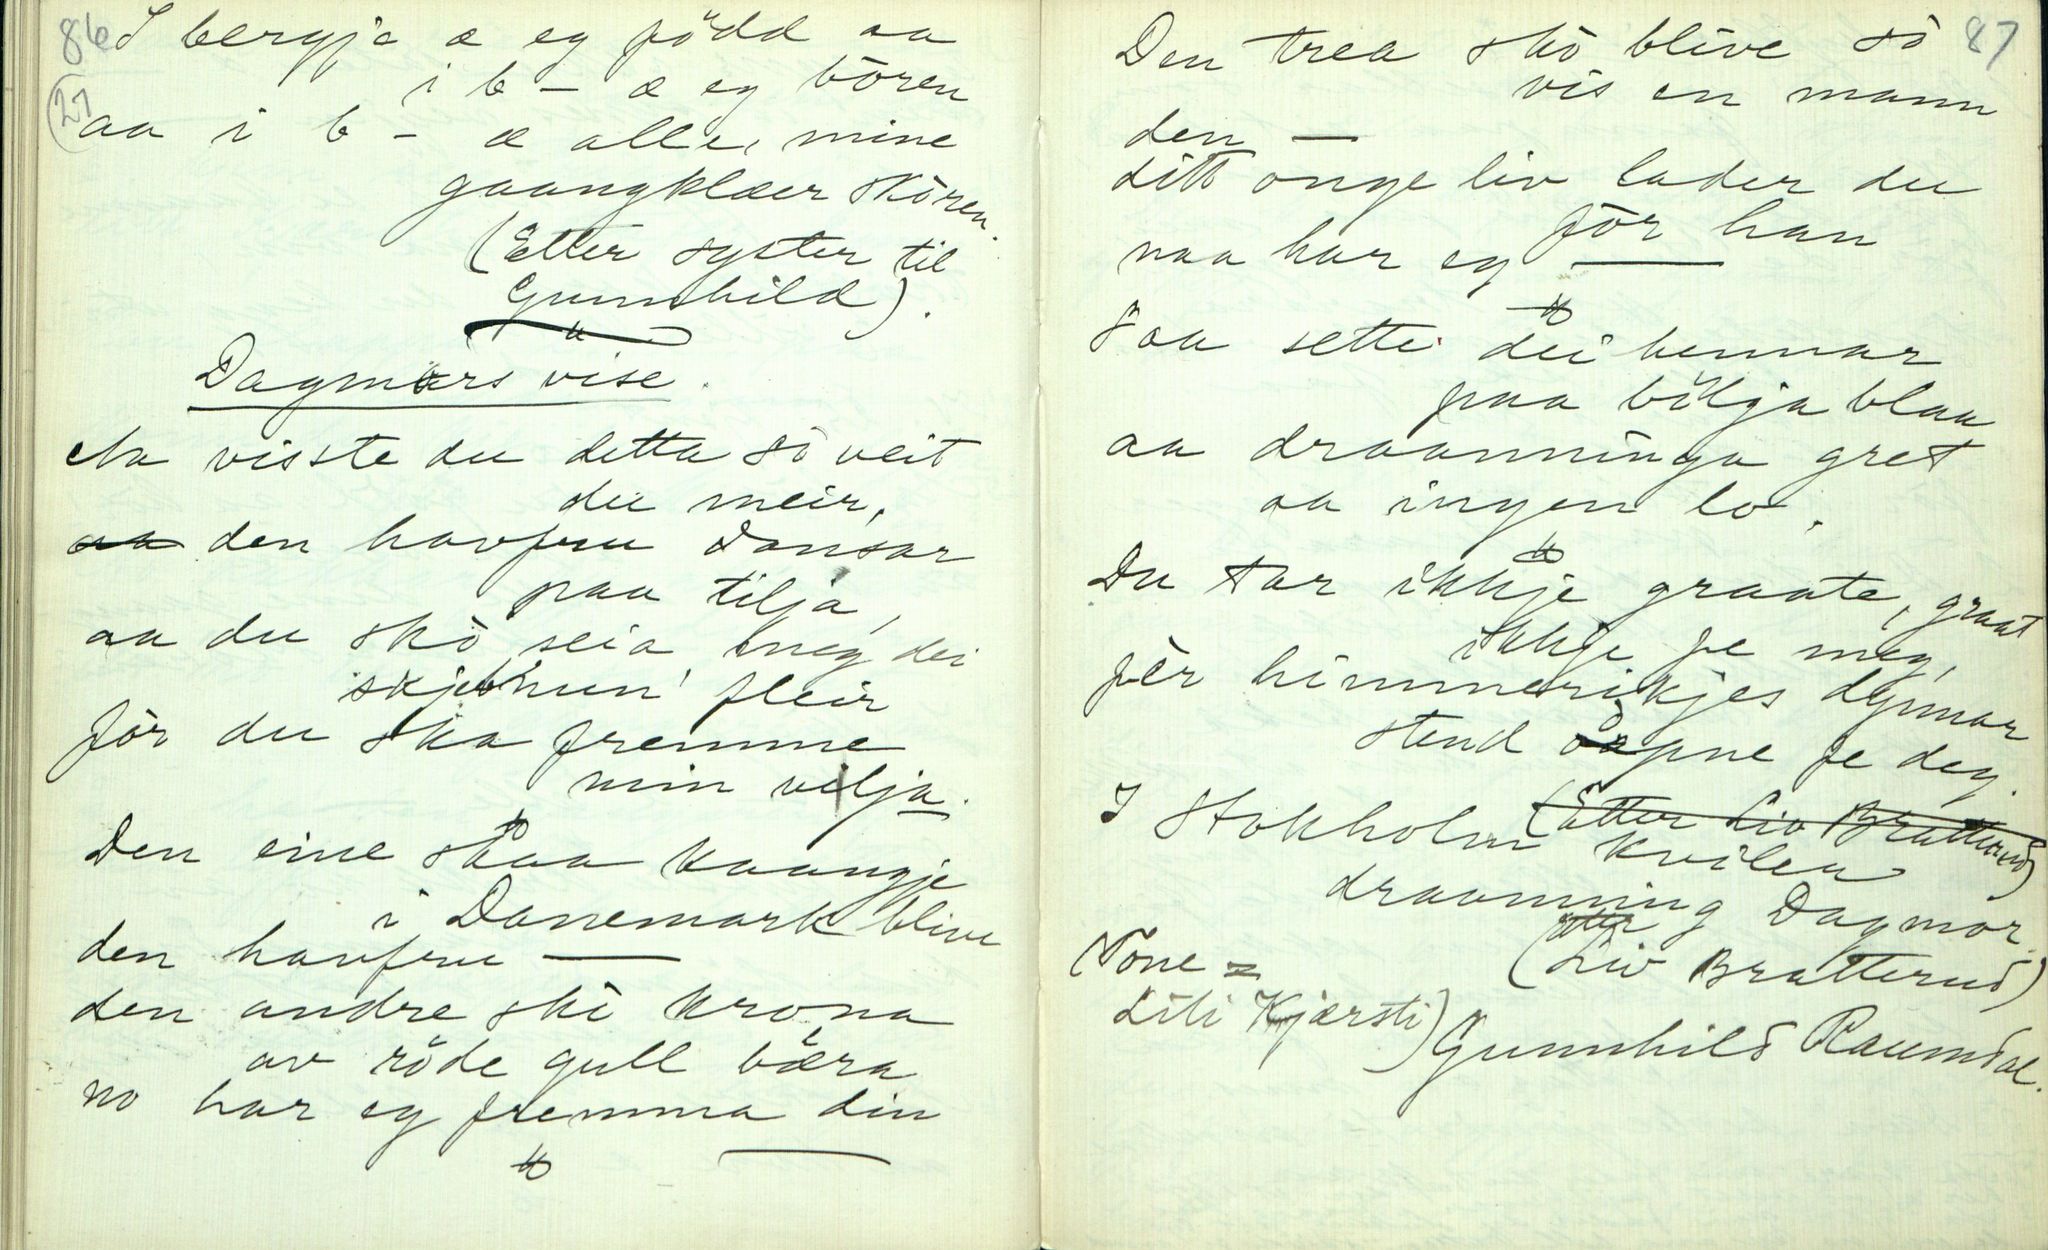 86 I bergje æ eg född aa
i b – æ eg bören
(27) aa i b – æ alle mine
gaangklæer skören.
(Etter syster til
Gunnhild).
Dagmars vise.
Aa visste du detta so veit
du meir,
aa den havfru dansar
paa tilja,
aa du skò seia meg dei
fleir
för du ska fremme
min vilja.
Den eine skaa kaangje
i Danemark blive
den havfru —
den andre ski krona
av röde gull bæra
no har eg fremma din —
87
Den trea skò blive so
vis en mann
den —
ditt onge liv lader du
för han
naa har eg —
Saa sette dei hennar
paa bölgja blaa
aa draanninga gret
aa ingen lo.
Du tar ikkje graate, graat
ikkje fe meg,
fer himmerikjes dynnar
stend opne fe deg.
(Etter Liv Bratterud)
I Stokholm kviler
draanning Dagmor.
(Liv Bratterud)
(Tone =
Liti Kjærsti)
Gunnhild Raumdal.